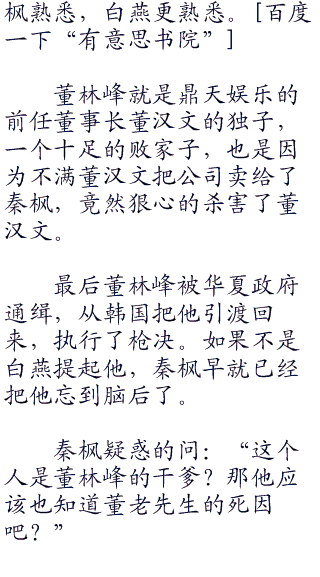 枫熟悉，白燕更熟悉。[百度
一下“有意思书院”]
董林峰就是鼎天娱乐的
前任董事长董汉文的独子，
一个十足的败家子，也是因
为不满董汉文把公司卖给了
秦枫，竟然狠心的杀害了董
汉文。
最后董林峰被华夏政府
通缉，从韩国把他引渡回
来，执行了枪决。如果不是
白燕提起他，秦枫早就已经
把他忘到脑后了。
秦枫疑惑的问：“这个
人是董林峰的干爹？那他应
该也知道董老先生的死因
吧？”